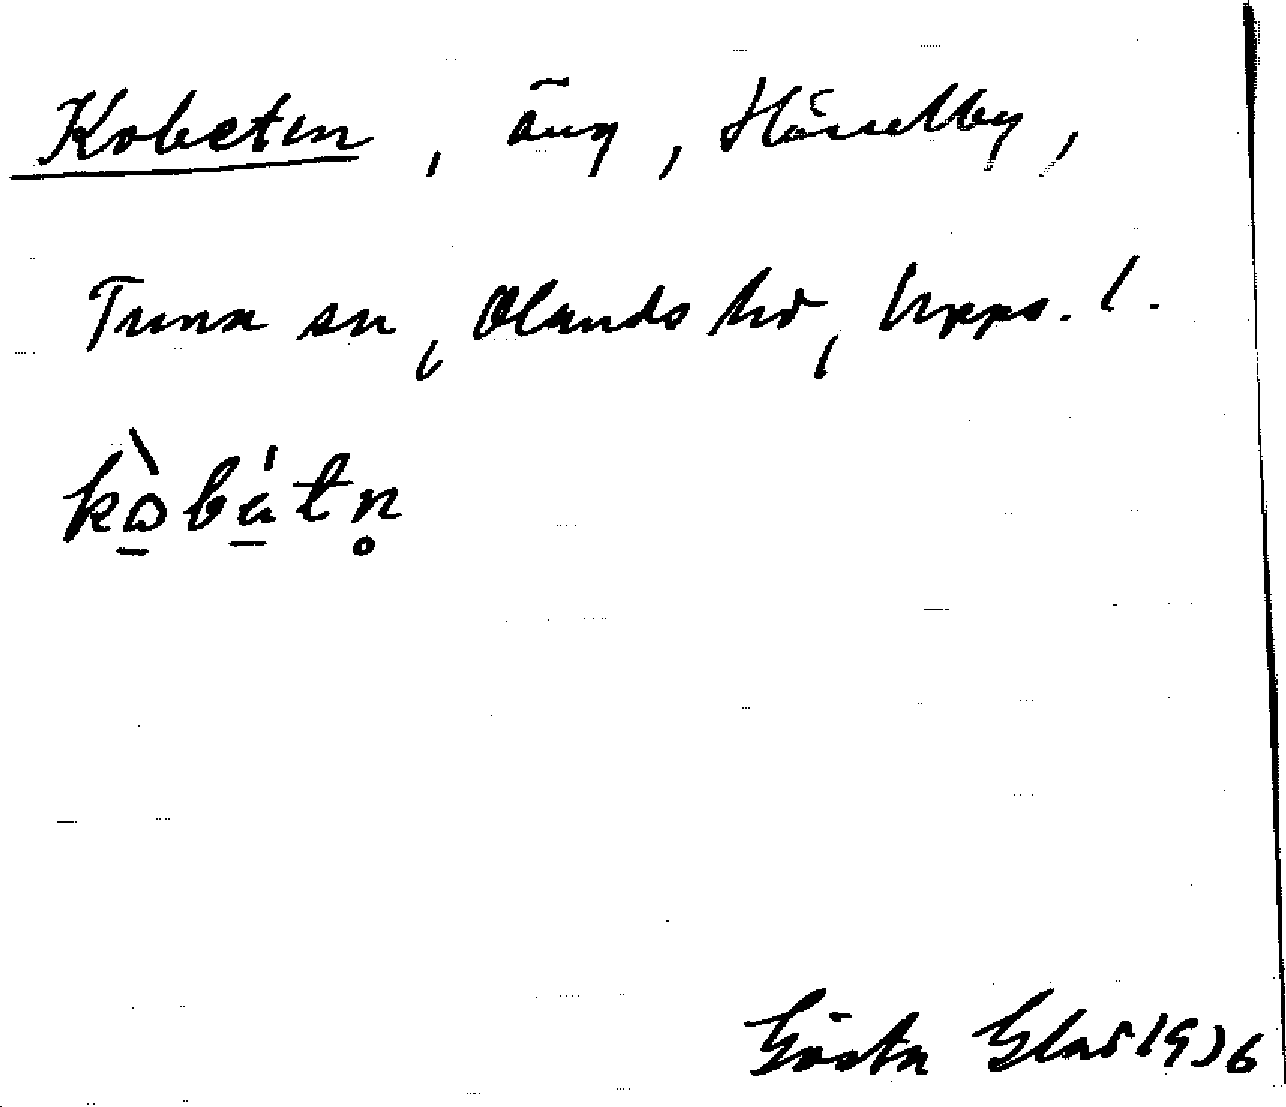 Kobeten, äng, Hässelby,
Tuna sn, Olands hd, Upps. l.
kò̠bá̠tn̥
Gösta Glas 1936